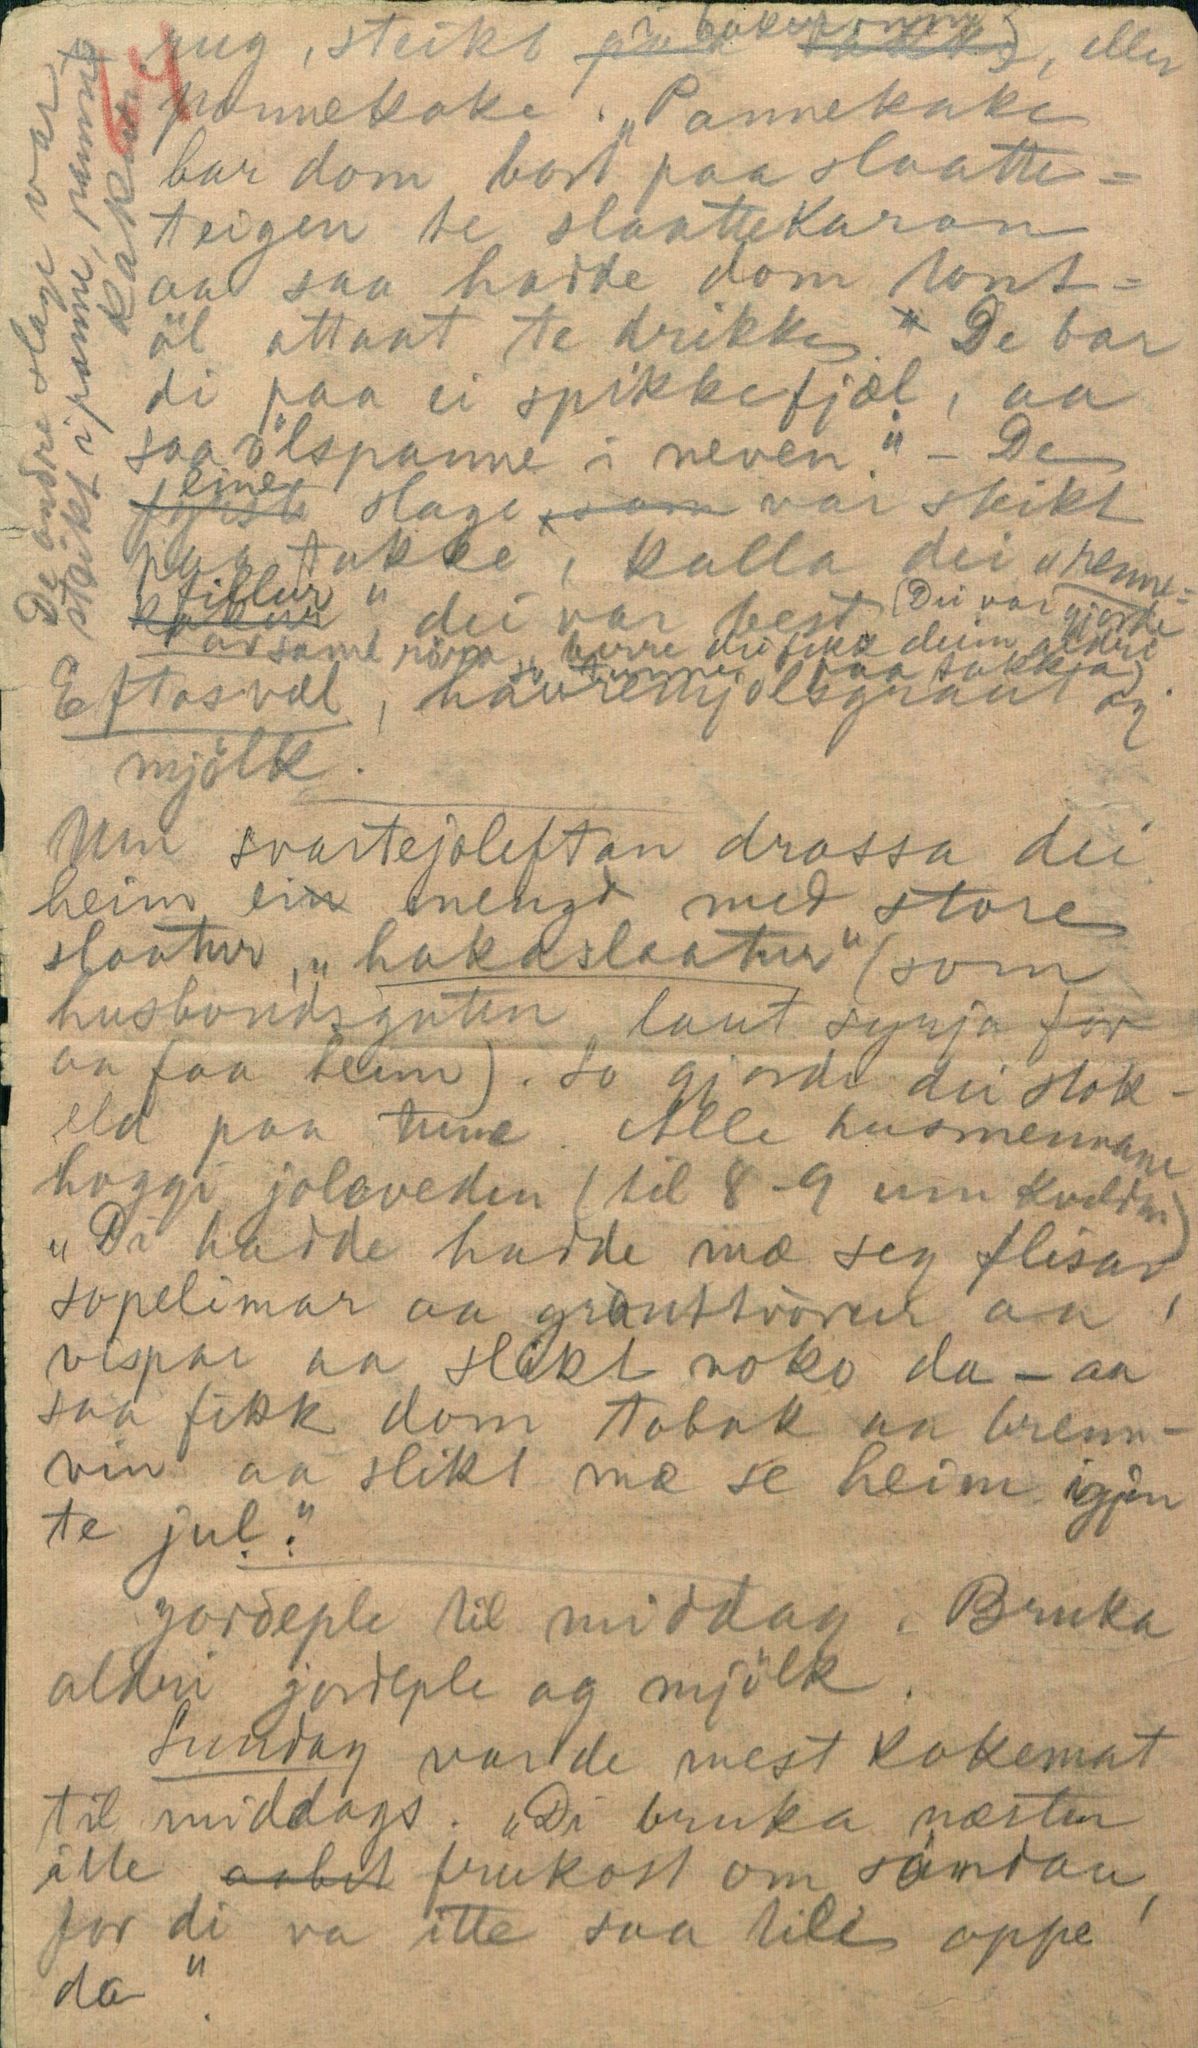 64
rug, steikt i bakaromn, eller
pannekake. "Pannekake
bar dom bort paa slaatte=
teigen te slaattekaran
aa saa hadde dom tont=
øl attaat te drikke. De bar
di paa ei spikkefjæl, aa
saa ølspanne i neven." – De
eine slage var steikt
paa takke, kalla dei "renne=
fillur" dei var best (Dei var gjorde
av same røra, berre dei fekk deim aldri
so tunne paa takkja)
Eftasvæl, havremjølsgraut og
mjølk.
De andre slage var
steikt i panne, pannekakur.
Um svartejoleftan drassa dei
heim ei mengd med store
slaatur, "hakaslaatur" (som
husbondsguten laut syrja for
aa faa heim). So gjorde dei stok-
eld paa tune. Alle husmennane
hoggi joleveden (til 8-9 um kvelden)
"Di hadde hadde mæ seg flisar,
sopelimar aa grauttvørur aa
vispar aa slikt noko da – aa
saa fikk dom tobak aa brenn-
vin aa slikt mæ se heim igjøn
te jul."
Jordeple til middag. Bruka
alderi jordeple og mjølk.
Sundag var de mest kokemat
til middags. "Di bruka næsten
itte aabet frukost om søndan,
for di va itte saa tile oppe
da".